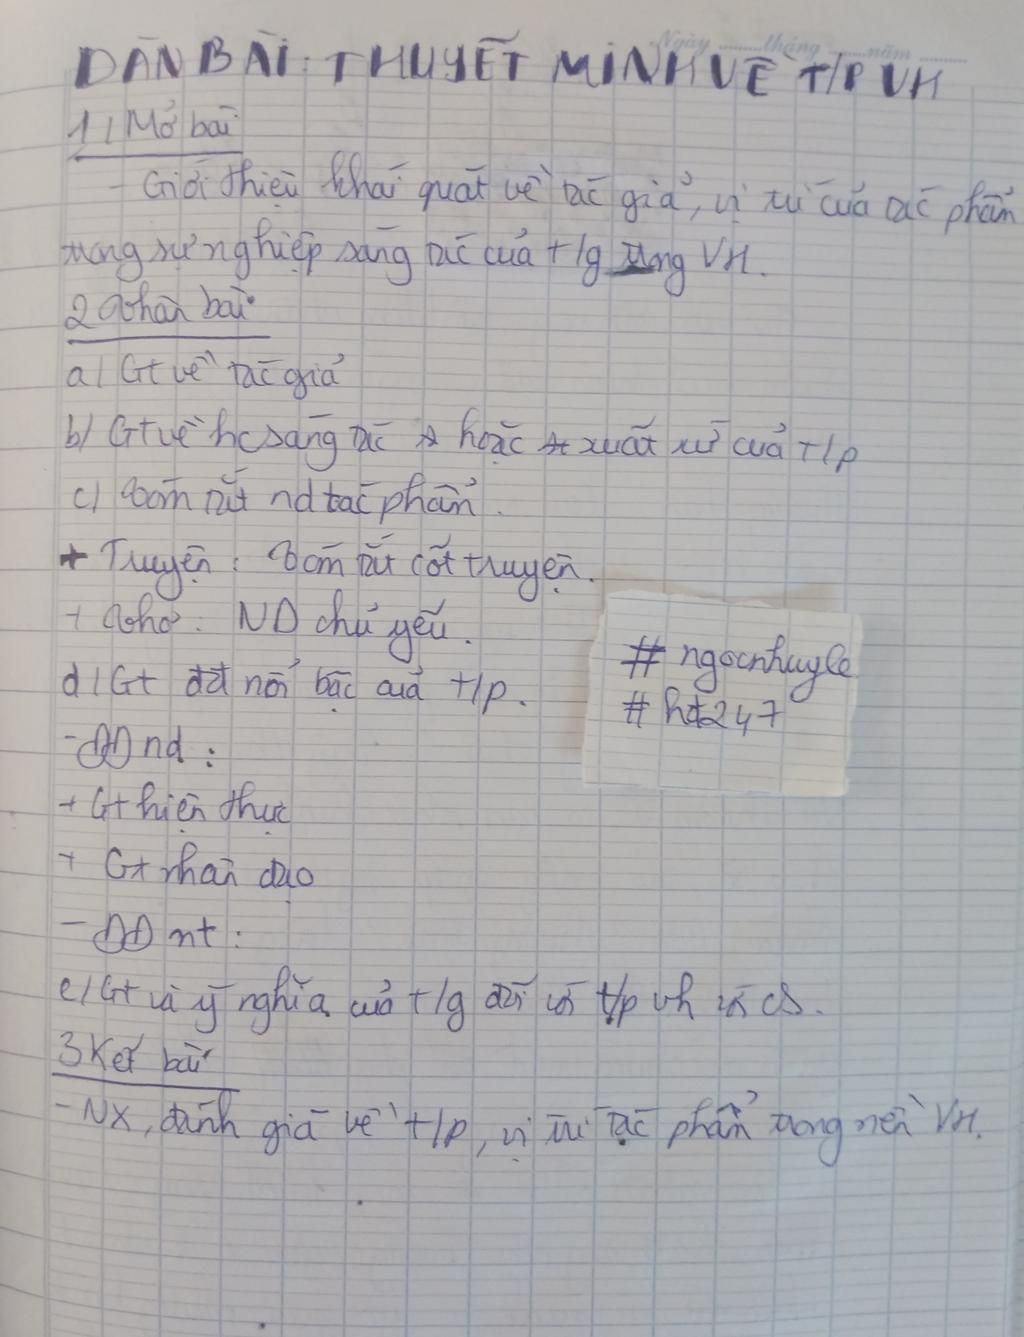 Ngày ........ tháng ........ năm ........
DÀN BÀI: THUYẾT MINH VỀ T/P VH
1/ Mở bài
- Giới thiệu khái quát về tác giả, vị trí của tác phẩm
trong sự nghiệp sáng tác của t/g trong VH.
2 Thân bài
a/ Gt về tác giả
b/ Gt về hc sáng tác hoặc xuất xứ của t/p
c/ Tóm tắt nd tác phẩm.
+ Truyện: Tóm tắt cốt truyện.
+ Thơ: ND chủ yếu.
d/ Gt đđ nổi bậc của t/p.
- ĐĐ nd:
+ Gt hiện thực
+ Gt nhân đạo
- ĐĐ nt:
e/ Gt và ý nghĩa của t/g đối với t/p vh với cs.
3 Kết bài
- NX, đánh giá về t/p, vị trí tác phẩm trong nền VH.
# ngocnhuyle
# hđ247